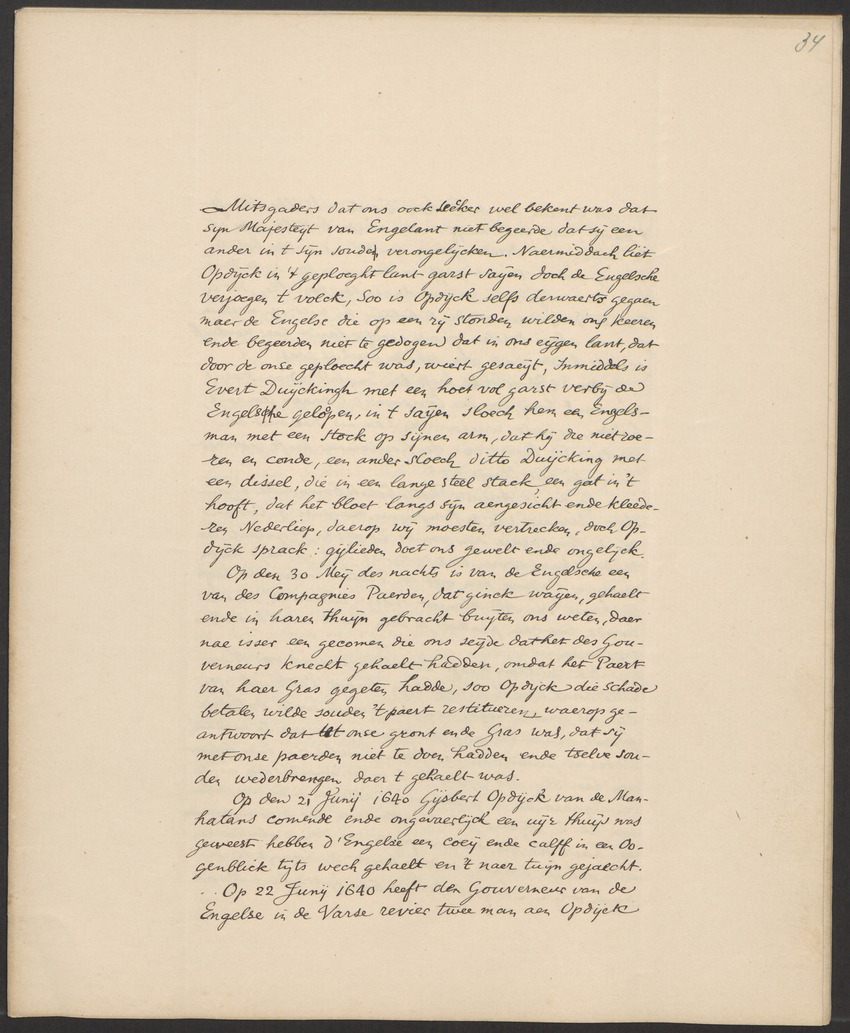 34
Mitsgaders dat ons oock seeker wel bekent was dat
syn Majesteyt van Engelant niet begeerde dat sij een
ander in t sijn souden verongelijcken. Naermiddach liet
Opdijck in 't geploeght lant garst sayen doch de Engelsche
verjoegen t volck, soo is Opdijck selfs derwaerts gegaen
maer de Engelse die op een rij stonden wilden ons keeren
ende begeerden niet te gedogen dat in ons eygen lant, dat
door de onse geploecht was, wiert gesaeyt, Inmiddels is
Evert Duijckingh met een hoet vol garst verbij de
Engelsche gelopen, in t sayen sloech hem een Engels-
man met een stock op sijnen arm, dat hij die niet roe-
ren en conde, een ander sloech ditto Duijcking met
een dissel, die in een lange steel stack, een gat in 't
hooft, dat het bloet langs sijn aengesicht ende kleede-
ren Nederliep, daerop wij moesten vertrecken, doch Op-
dijck sprack: gijlieden doet ons gewelt ende ongelijck.
Op den 30 Meij des nachts is van de Engelsche een
van des Compagnies Paerden, dat ginck wayen, gehaelt
ende in haren thuijn gebracht buijten ons weten, daer
nae isser een gecomen die ons seijde dat het des Gou-
verneurs knecht gehaelt hadden, omdat het Paert
van haer Gras gegeten hadde, soo Opdijck die schade
betalen wilde souden 't paert restitueren, waerop ge-
antwoort dat het onse gront ende Gras was, dat sij
met onse paerden niet te doen hadden ende tselve sou-
den wederbrengen daer t gehaelt was.
Op den 21 Junij 1640 Gijsbert Opdijck van de Man-
hatans comende ende ongevaerlijck een uijr thuijs was
geweest hebben d'Engelse een coeij ende calff in een Oo-
genblick tijts wech gehaelt en 't naer tuijn gejaecht.
Op 22 Junij 1640 heeft den Gouverneur van de
Engelse in de Varse revier twee man aen Opdijck